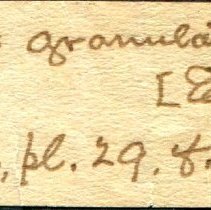 granula
[E
. pl. 29. f.